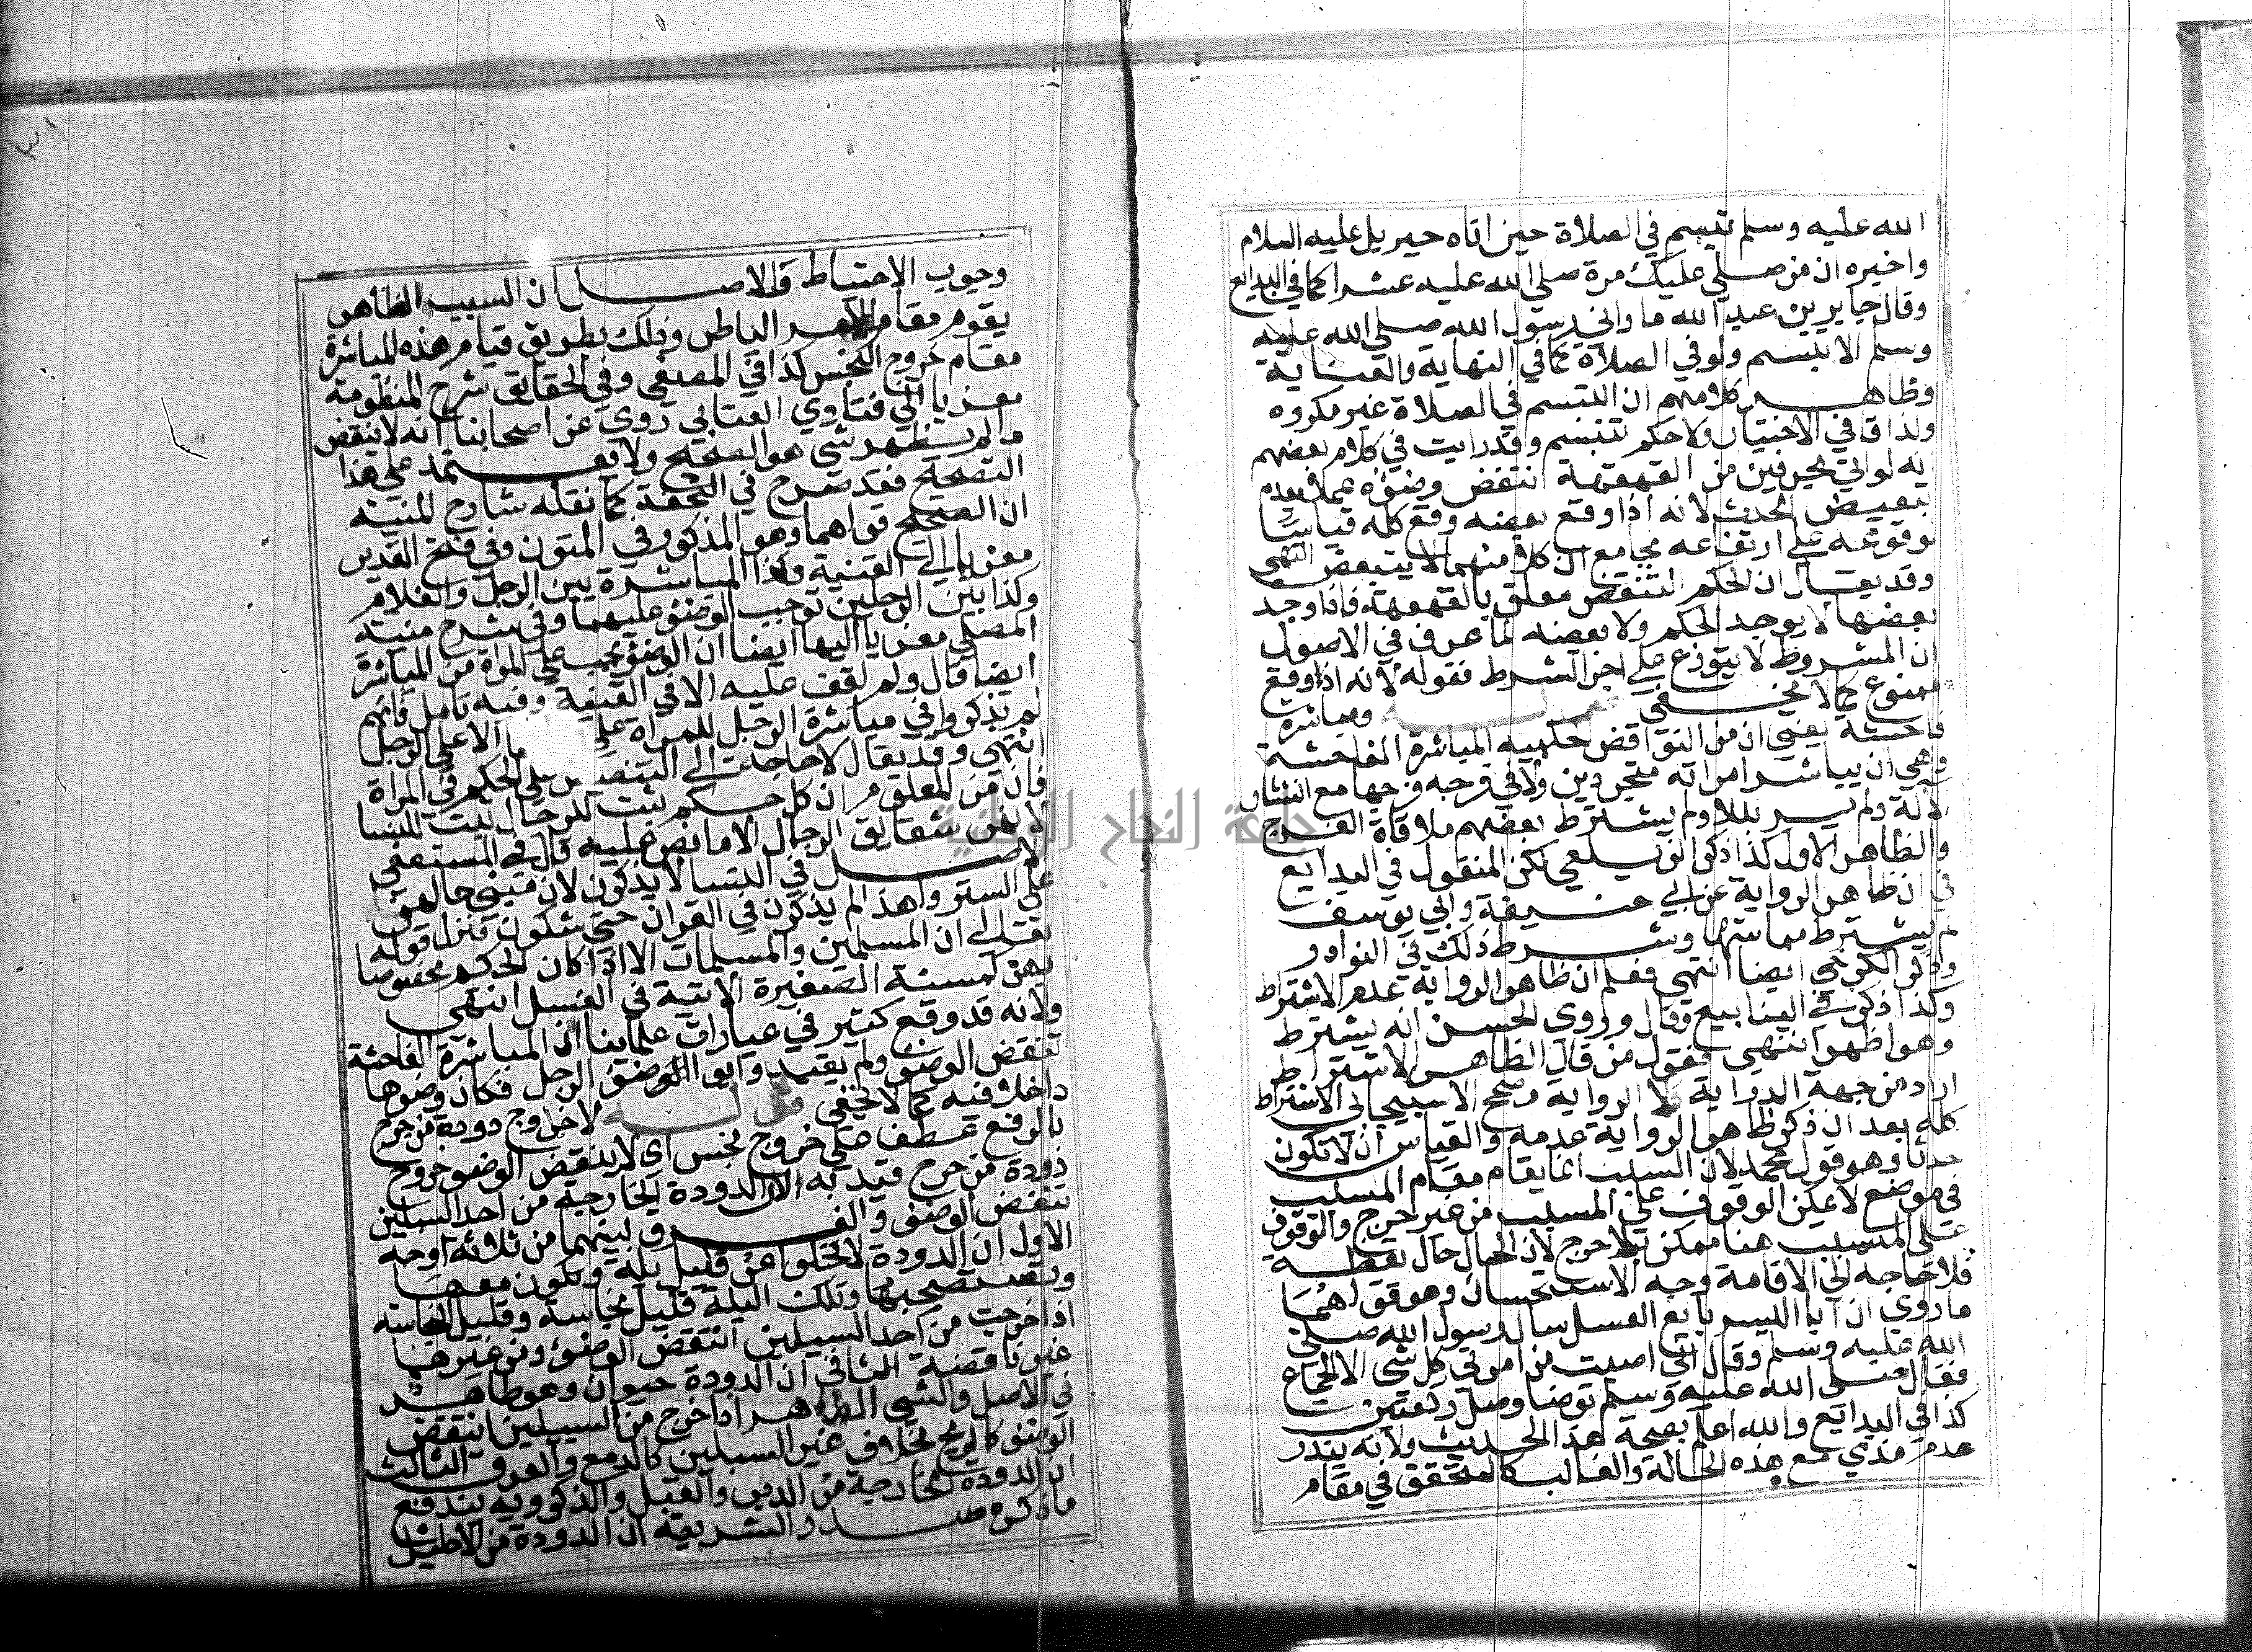 الله عليه وسلم تبسم في الصلاة حين اتاه جبريل عليه السلام
واخبره ان من صلى عليك مرة صلى الله عليه عشرا كما في البدايع
وقال جابر بن عبد الله ما راني رسول الله صلى الله عليه
وسلم الا تبسم ولو في الصلاة كما في النهاية والعناية
وظاهر كلامهم ان التبسم في الصلاة غير مكروه
ولذا قال في الاختيار ولا حكم للتبسم وقد رايت في كلام بعضهم
انه لو اتى بحرفين من القهقهة انتقض وضوءه عملا بعدم
تبعيض الحدث لانه اذا وقع بعضه وقع كله قياسا
لوقوعه على ارتفاعه بجامع ان كلا منهما لا يتبعض انتهى
وقد يقال ان الحكم بالنقض معلق بالقهقهة فاذا وجد
بعضها لا يوجد الحكم ولا بعضه لما عرف في الاصول
ان المشروط لا يتوزع على اجزا الشرط فقوله لانه اذا وقع
ممنوع كما لا يخفى قوله ومباشرة
فاحشة يعني ان من النواقض الحكمية المباشرة الفاحشة
وهي ان يباشر امراته متجردين ولاقى فرجه فرجها مع انتشار
الالة ولم ير بللا ولم يشترط بعضهم ملاقاة الفرج
والظاهر الاول كذا ذكر الزيلعي لكن المنقول في البدايع
ان في ظاهر الرواية عن ابي حنيفة وابي يوسف
لم يشترط مماستها وشرط ذلك في النوادر
وذكر الكرخي ايضا انتهى فعلم ان ظاهر الرواية عدم الاشتراط
وكذا ذكر في الينابيع وقال وروى الحسن انه يشترط
وهو اظهر انتهى فقول من قال الظاهر الاشتراط
اراد من جهة الدراية لا الرواية وصحح الاسبيجابي الاشتراط
كله بعد ان ذكر ظاهر الرواية عدمه والقياس ان لا تكون
حدثا وهو قول محمد لان السبب انما يقام مقام المسبب
في موضع لا يمكن الوقوف على المسبب من غير حرج والوقوف
على المسبب هنا ممكن بلا حرج لان الحال حال يقظة
فلا حاجة الى الاقامة وجه الاستحسان وهو قولهما
ما روي ان ابا اليسر بايع العسل سال رسول الله صلى
الله عليه وسلم وقال اني اصبت من امراتي كل شي الا الجماع
فقال صلى الله عليه وسلم توضا وصل ركعتين
كذا في البدايع والله اعلم بصحة هذا الحديث ولانه يندر
عدم مذي مع هذه الحالة والغالب كالمتحقق في مقام
وجوب الاحتياط والاصل ان السبب الظاهر
يقوم مقام الامر الباطن وذلك بطريق قيام هذه المباشرة
مقام خروج النجس كذا في المصفى وفي الحقايق شرح المنظومة
معزيا الى فتاوي العتابي روى عن اصحابنا انه لا ينقض
ما لم يظهر شي هو الصحيح ولا يعتمد على هذا
التصحيح فقد صرح في التحفة كما نقله شارح المنية
ان الصحيح قولهما وهو المذكور في المتون وفي فتح القدير
معزيا الى القنية وكذا المباشرة بين الرجل والغلام
وكذا بين الرجلين توجب الوضوء عليهما وفي شرح منية
المصلي معزيا اليها ايضا ان الوضوء يجب على المراة من المباشرة
ايضا قال ولم اقف عليه الا في القنية وفيه تامل فانهم
لم يذكروا في مباشرة الرجل للمراة على الا على الرجل
انتهى وقد يقال لا حاجة الى التنصيص على الحكم في المراة
فان من المعلوم ان كل حكم ثبت للرجال ثبت للنسا
لانهن شقايق الرجال الا ما نص عليه قال في المستصفى
الاصل في النسا لا يذكرن لان مبنى حالهن
على الستر ولهذا لم يذكرن في القران حتى شكون فنزل قوله
تعالى ان المسلمين والمسلمات الا اذا كان الحكم مخصوصا
بهن كمسئلة الصغيرة الاتية في الغسل انتهى
ولانه قد وقع كثير في عبارات علماينا ان المباشرة الفاحشة
تنقض الوضوء ولم يقيد وابو الوضوء الرجل فكان وضوها
داخلا فيه كما لا يخفى قوله لا خروج دودة من جرح
بالرفع عطف على خروج نجس اي لا ينقض الوضوء خروج
دودة من جرح قيد به لان الدودة الخارجة من احد السبيلين
تنقض الوضوء والفرق بينهما من ثلاثة اوجه
الاول ان الدودة لا تخلوا عن قليل بلة وتكون معها
وتستصحبها وتلك البلة قليل نجاسة وقليل النجاسة
اذا خرجت من احد السبيلين انتقض الوضوء ومن غيرهما
غير ناقضة الثاني ان الدودة حيوان وهو طاهر
في الاصل والشي الطاهر اذا خرج من السبيلين انتقض
الوضوء كالريح بخلاف غير السبيلين كالدمع والعرق الثالث
ان الدودة الخارجة من الدبر والقبل والذكر وبه يندفع
ما ذكره صدر الشريعة ان الدودة من الاحليل